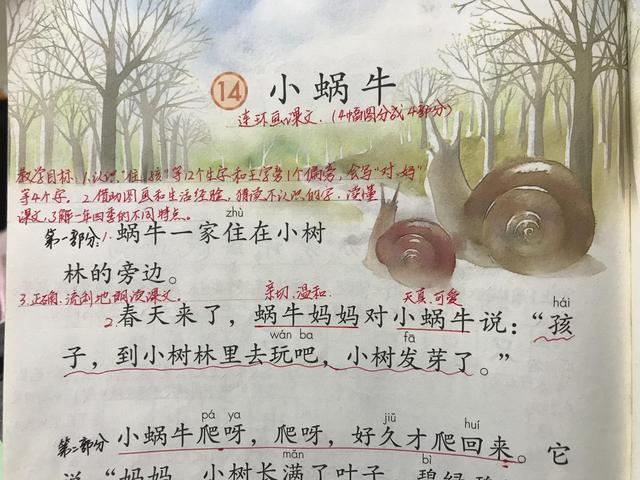 14 小蜗牛
连环画课文.（4幅图分成4部分）
教学目标:1.认识“住、孩”等12个生字和王字旁1个偏旁,会写“对、妈”
等4个字。2.借助图画和生活经验,猜读不认识的字,读懂
课文,了解一年四季的不同特点。
zhù
第一部分:1.蜗牛一家住在小树
林的旁边。
3.正确.流利地朗读课文. 亲切.温和. 天真.可爱
hái
2.春天来了，蜗牛妈妈对小蜗牛说：“孩
wán ba fā
子，到小树林里去玩吧，小树发芽了。”
pá ya jiǔ huí
第二部分 小蜗牛爬呀，爬呀，好久才爬回来。它
mǎn bì
说：“妈妈，小树长满了叶子，碧绿